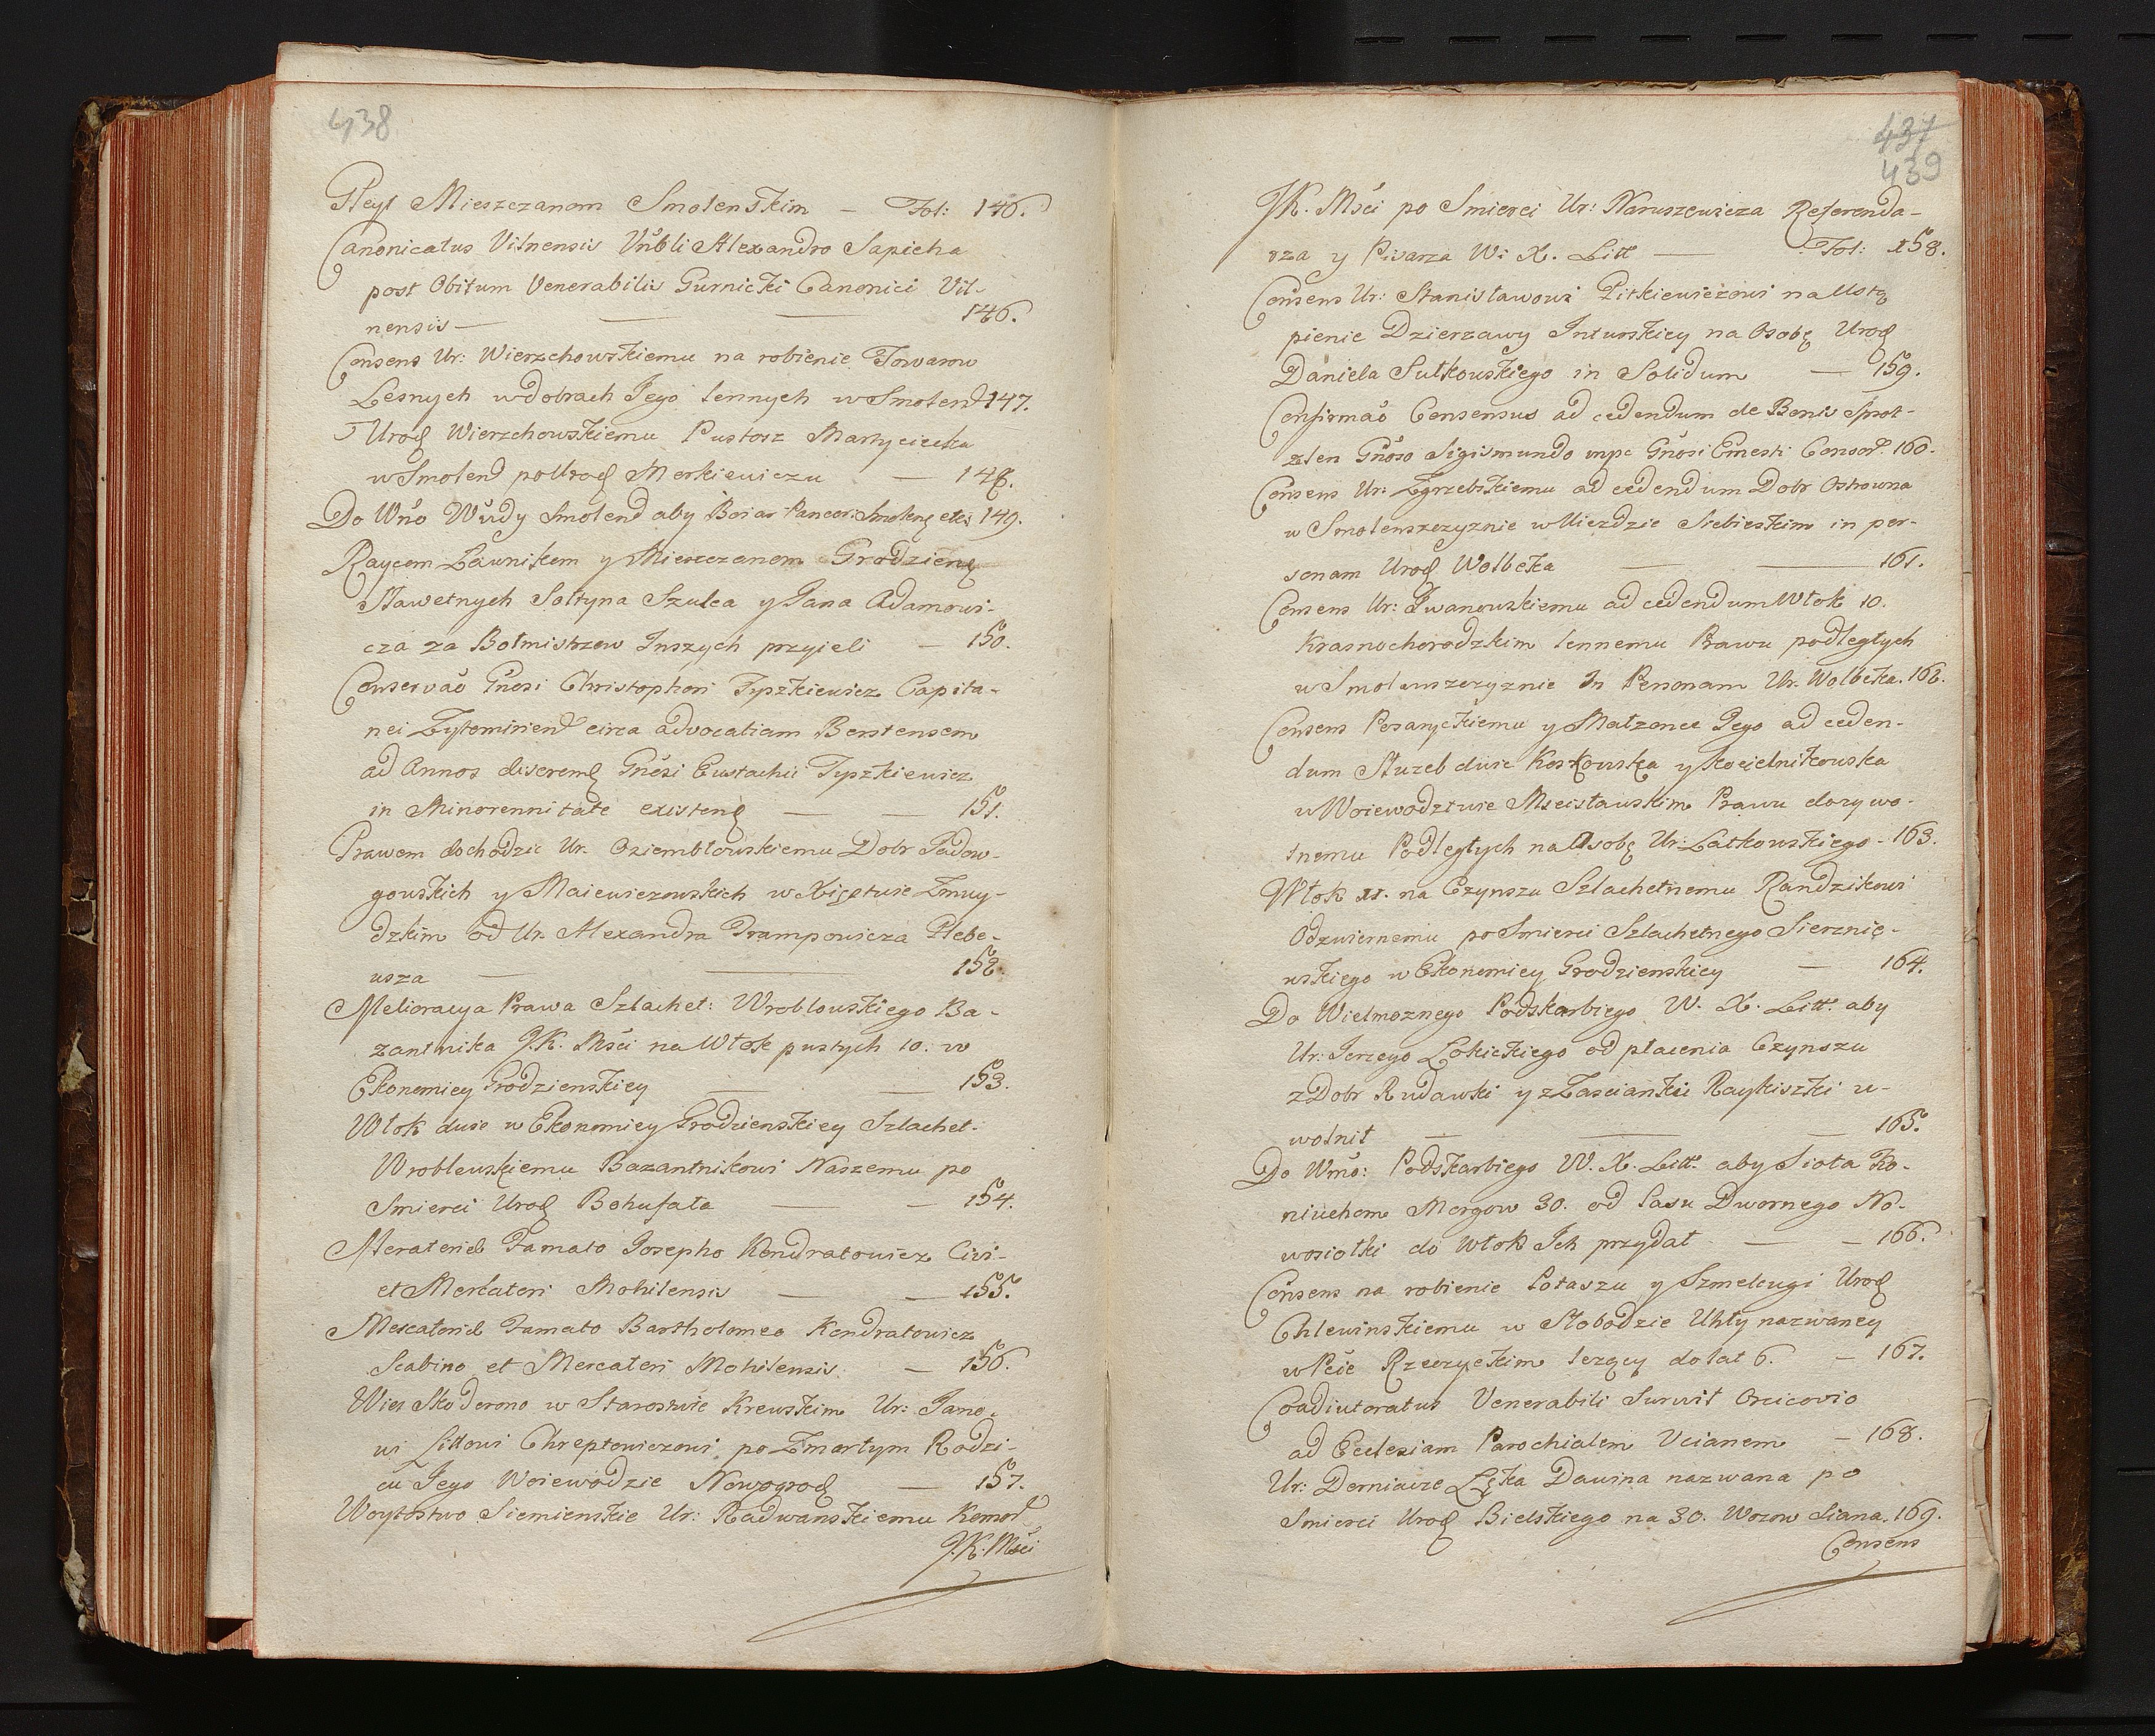 438
Gleyt Mieszczanom Smolenskim — Fol: 146.
Canonicatus Vilnensis Vnbli Alexandro Sapieha
post Obitum Venerabilis Gurnicki Canonici Vil-
nensis — 146.
Consens Ur: Wierzchowskiemu na robienie Towarow
Lesnych w dobrach Jego lennych w Smolend 147.
Urod Wierzchowskiemu Pustosz Martyciecka
w Smolend po Urod Merkiewiczu — 148.
Do Wno Wudy Smolend aby Boiar Pancor: Smolenq etc 149.
Raycom Ławnikom y Mieszczanom Grodzienq
Sławetnych Soltyna Szulca y Jana Adamowi-
cza za Botmistrzow Inszych przyieli — 150.
Conservao Gnosi Christophori Tyszkiewicz Capita-
nei Zytomirien circa advocatiam Berstensem
ad Annos discremq Gnosi Eustachii Tyszkiewicz
in Minorennitate existenq — 151.
Prawem dochodzic Ur. Oziembłowskiemu Dobr Padow-
gowskich y Maiewiczowskich w Xięstwie Zmuy-
dzkim od Ur. Alexandra Prampowicza Plebe-
usza — 152.
Melioracya Prawa Szlachet: Wroblowskiego Ba-
zantnika J.K. Msci na Włok pustych 10. w
Ekonomiey Grodzienskiey — 153.
Włok dwie w Ekonomiey Grodzienskiey Szlachet.
Wroblewskiemu Bazantnikowi Naszemu po
Smierci Urod Bohufała — 154.
Meratorid Famato Josepho Kondratowicz Civi-
et Mercatori Mohilensis — 155.
Mercatorid Famato Bartholomeo Kondratowicz
Scabino et Mercatori Mohilensis. — 156.
Wies Skoderono w Starostwie Krewskim Ur: Jano-
wi Littowi Chreptowiczowi po Zmarłym Rodzi-
cu Jego Woiewodzie Nowogrod — 157.
Woytostwo Siemienskie Ur: Radwanskiemu Komor
J.K. Msci
437
439
JK. Msci po Smierci Ur: Naruszewicza Referenda-
rza y Pisarza W. X. Litt — Fol: 158.
Consens Ur: Stanisławowi Pitkiewiczowi na Ustą
pienie Dzierzawy Inturskiey na Osobę Urod
Daniela Sutkowskiego in Solidum — 159.
Confirmao Consensus ad cedendum de Bonis Smot-
zlen Gnoso Sigismundo Gnosi Ernesti Consor. 160.
Consens Ur: Zgrzebskiemu ad cedendum Dobr Ostrowna
w Smolenszczyznie w Uiezdzie Siebieskim in per-
sonam Urod Wolbeka — 161.
Consens Ur: Iwanowskiemu ad cedendum Włok 10.
Krasnochorodzkim lennemu Prawu podległych
w Smolenszczyznie In Personam Ur. Wolbeka. 162.
Consens Posanyckiemu y Małzonce Jego ad ceden-
dum Słuzeb dwie Koskowska y Kocielnikowska
w Woiewodztwie Mscisławskim Prawu dozywo-
tnemu Podległych na Osobę Ur: Latkowskiego - 163.
Włok 11. na Czynszu Szlachetnemu Randzikowi
Odzwiernemu po Smierci Szlachetnego Siernię-
wskiego w Ekonomiey Grodzienskiey — 164.
Do Wielmoznego Podskarbiego W. X. Litt. aby
Ur: Jerzego Łokickiego od płacenia Czynszu
z Dobr Rudawki y z Zascianki Raykiszki u-
wolnił — 165.
Do Wmo: Podskarbiego W. X. Litt. aby Sioła Ko-
niuchom Morgow 30. od Lasu Dwornego No-
wosiołki do Włok Ich przydał — 166.
Consens na robienie Potaszu y Szmelcugi Urod
Chlewinskiemu w Słobodzie Uhly nazwaney
w Pcie Rzeczyckim lezącey do lat 6. — 167.
Coadiutoratus Venerabili Surwit Orcicovio
ad Ecclesiam Parochialem Ucianem — 168.
Ur: Derniacze Łęka Dawina nazwana po
Smierci Urod Bielskiego na 30. Wozow Siana. 169.
Consens